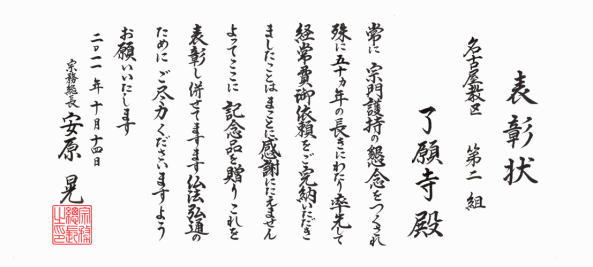 表彰状
名古屋教区　第二組
了願寺殿
常に宗門護持の懇念をつくされ
殊に五十ヵ年の長きにわたり率先して
経常費御依頼をご完納いただき
ましたことはまことに感謝にたえません
よってここに記念品を贈りこれを
表彰し併せてますます仏法弘通の
ためにご尽力くださいますよう
お願いいたします
二〇一一年十月十四日
宗務総長　安原　晃
宗務
總長
之印